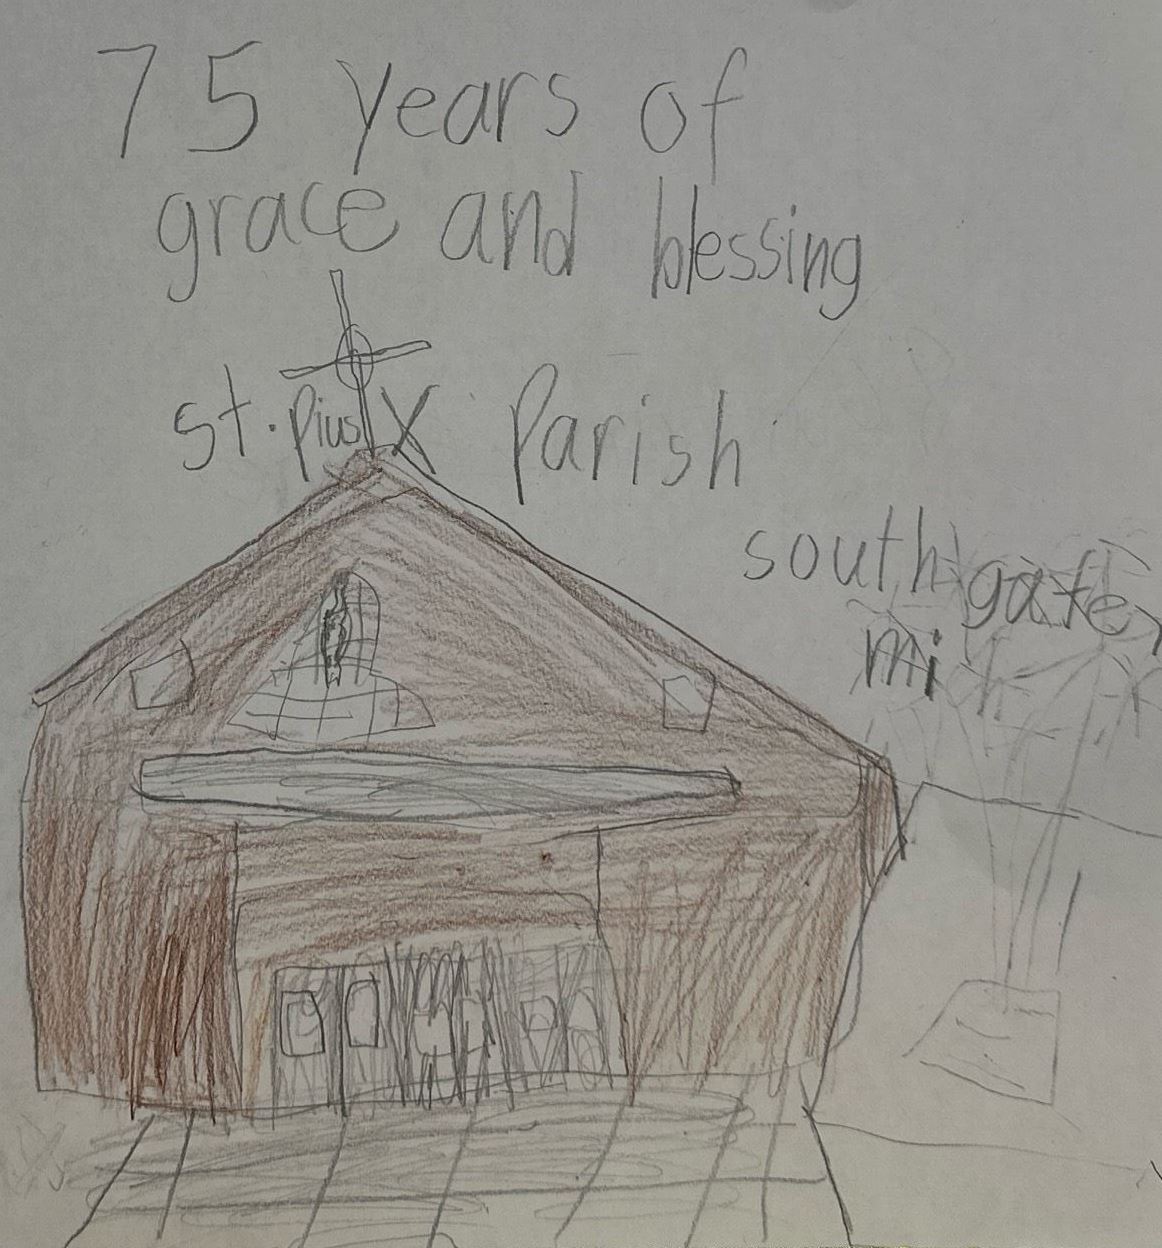 75 years of
grace and blessing
st. Pius X Parish
southgate,
mi